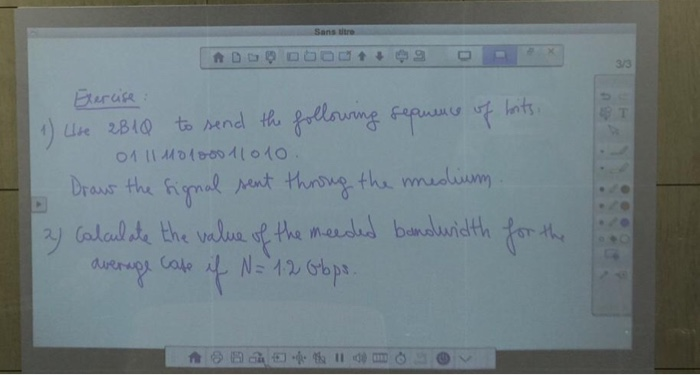 Sans titre
3/3
Exercise:
1) Use 2B1Q to send the following sequence of bits.
Draw the signal sent throug the medium.
2) Calculate the value of the needed bandwidth for the
average case if N = 1.2 Gbps.